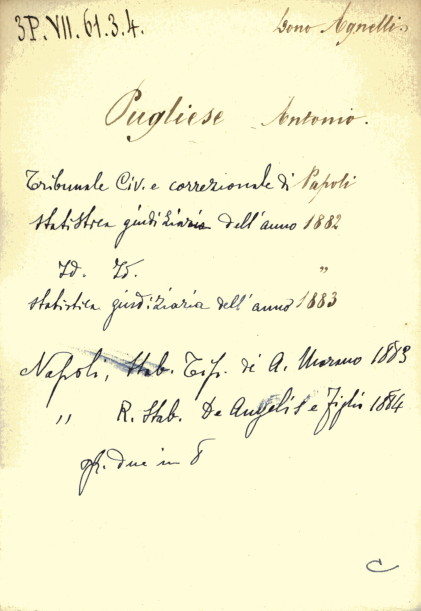 3P.VII.61.3.4. Dono Agnelli.
Pugliese Antonio.
Tribunale Civ. e correzionale di Napoli
statistica giudiziaria dell'anno 1882
Id. Id. "
statistica giudiziaria dell'anno 1883
Napoli, Stab. Tip. di A. Morano 1883
" R. Stab. De Angelis e Figlio 1884
due in 8
C